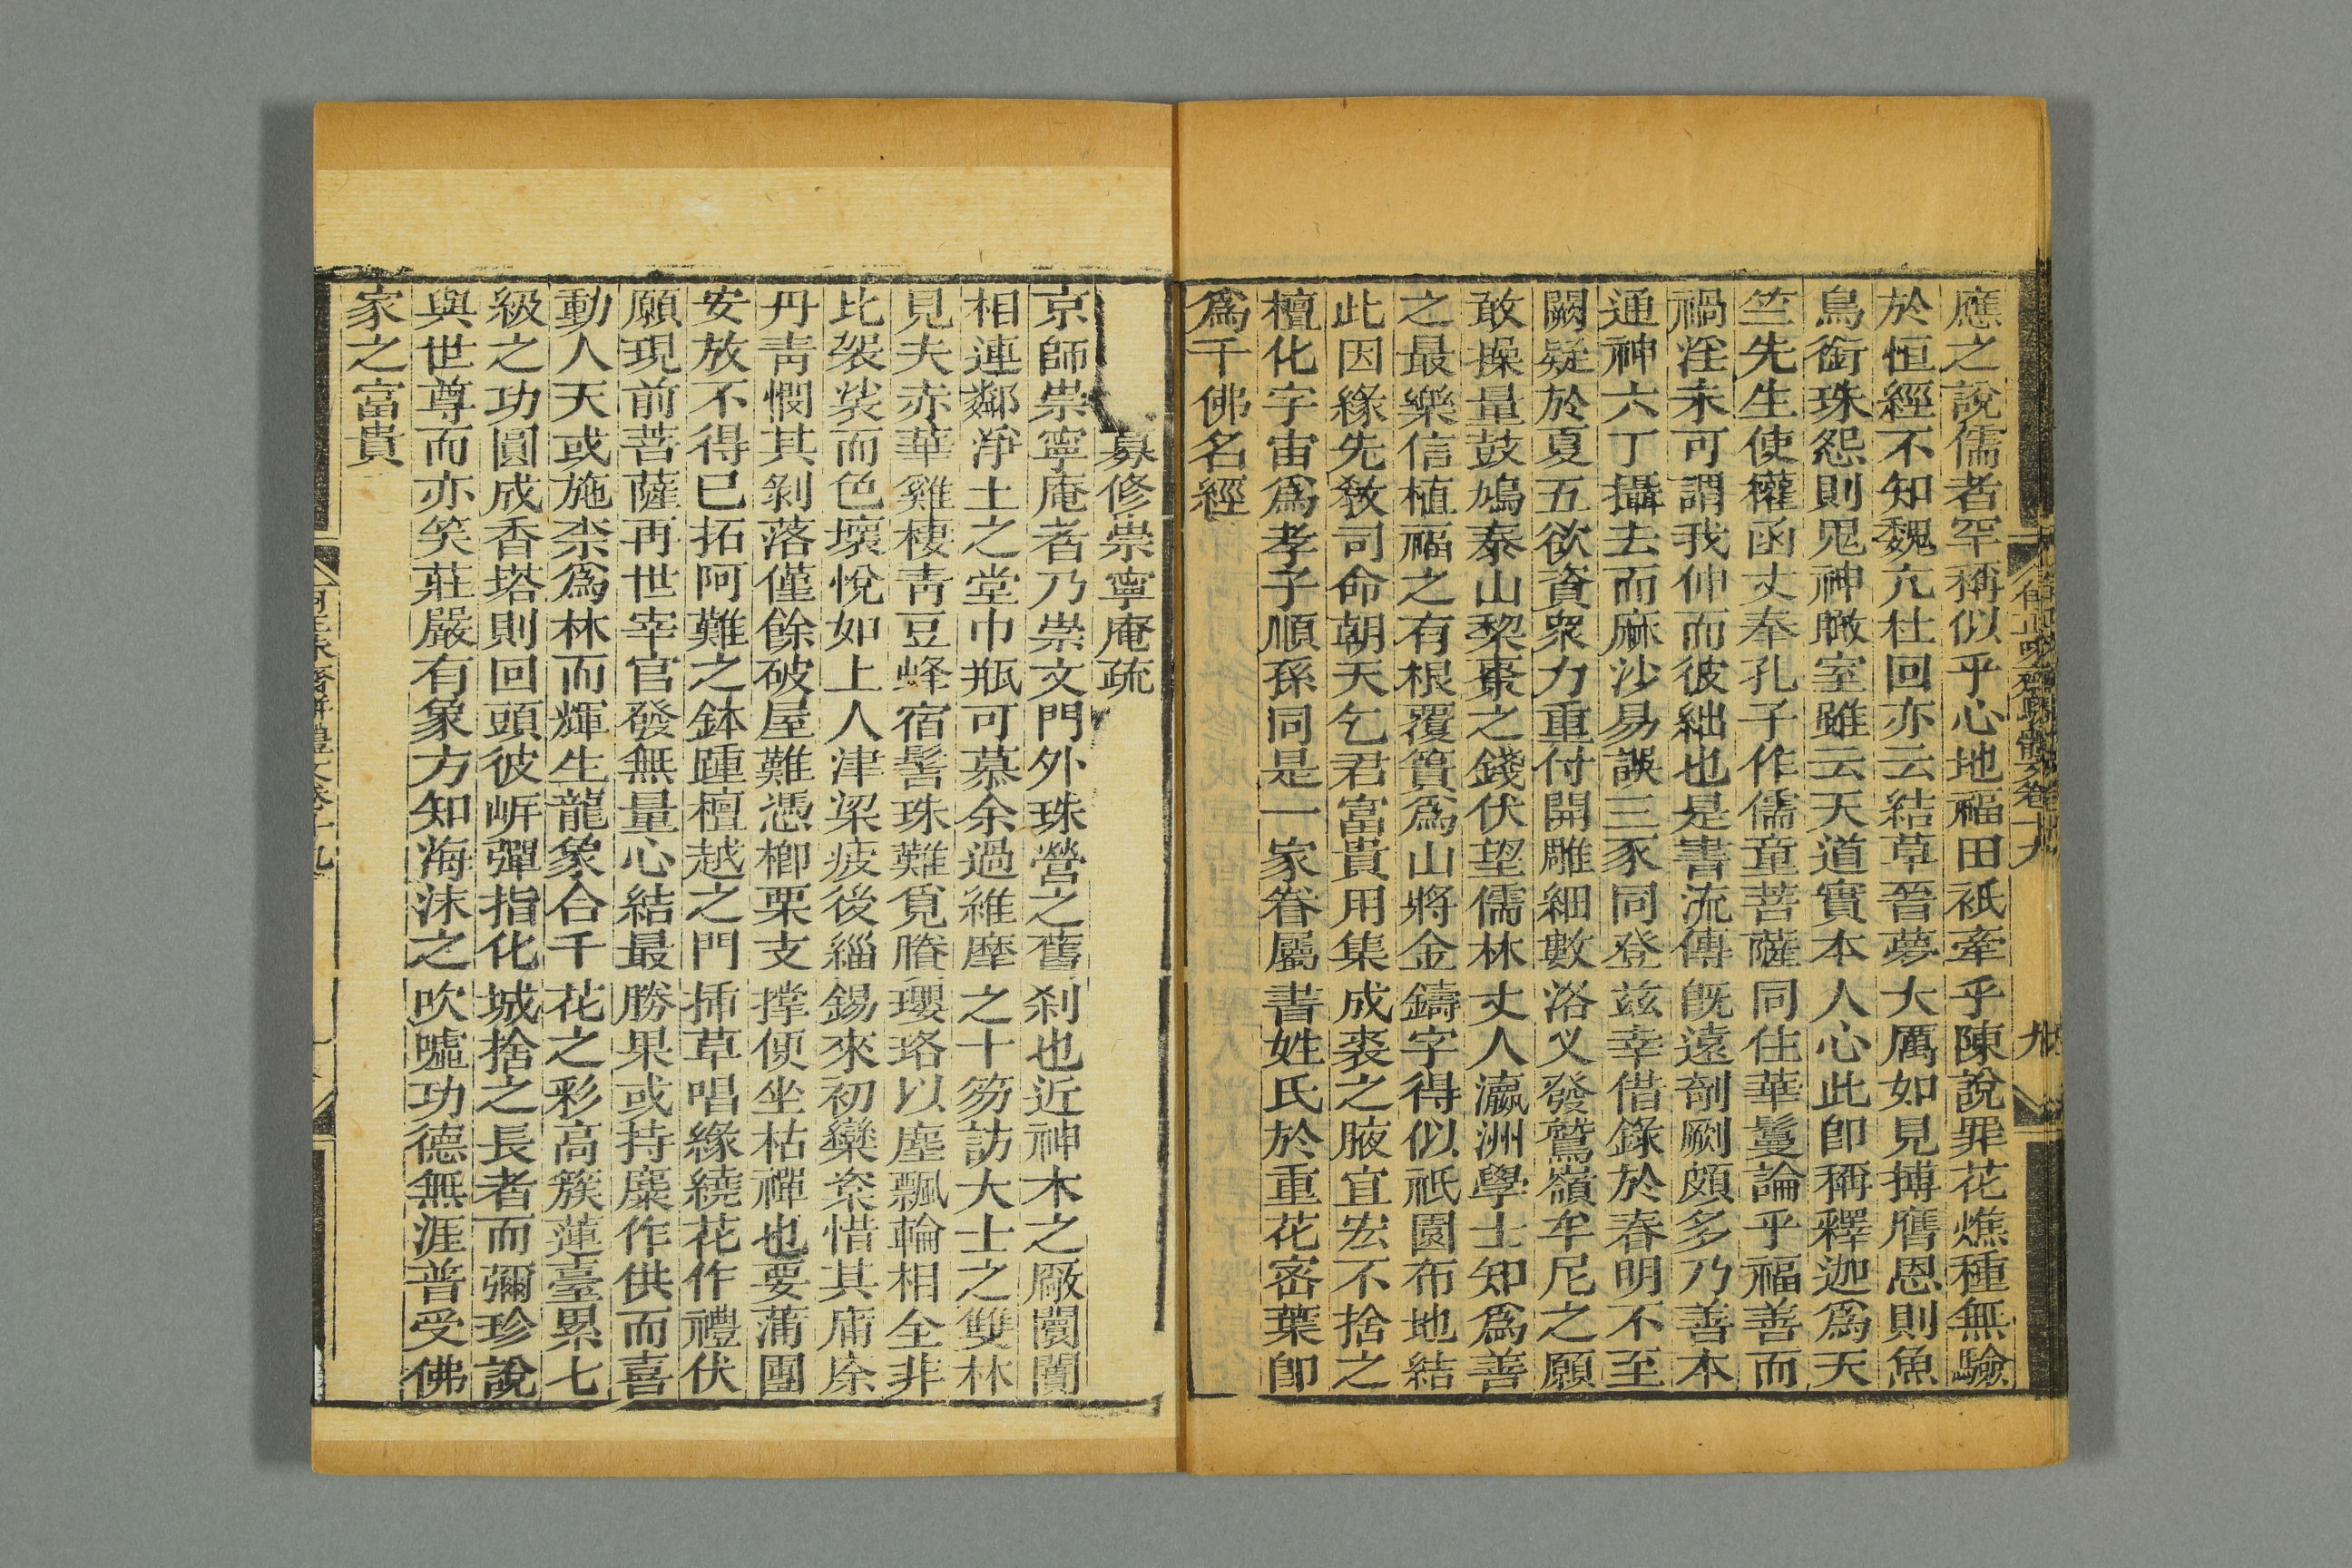 應之說儒者罕稱似乎心地福田祇牽乎陳說罪花燋種無驗
於恒經不知魏亢杜回亦云結草晉夢大厲如見搏膺恩則魚
鳥銜珠怨則鬼神瞰室雖云天道實本人心此卽稱釋迦爲天
竺先生使權函丈奉孔子作儒童菩薩同住華鬘論乎福善而
禍淫未可謂我伸而彼絀也是書流傳旣遠剞劂頗多乃善本
通神六丁攝去而麻沙易誤三豕同登茲幸借錄於春明不至
闕疑於夏五欲資衆力重付開雕細數洛乂發鷲嶺牟尼之願
敢操量鼓鳩泰山黎棗之錢伏望儒林丈人瀛洲學士知爲善
之最樂信植福之有根覆簣爲山將金鑄字得似祇園布地結
此因緣先敎司命朝天乞君富貴用集成裘之腋宜宏不捨之
檀化字宙爲孝子順孫同是一家眷屬書姓氏於重花密葉卽
爲千佛名經
募修崇寧庵疏
京師崇寧庵者乃崇文門外珠營之舊刹也近神木之廠闤闠
相連鄰淨土之堂巾瓶可慕余過維摩之十笏訪大士之雙林
見夫赤華雞棲靑豆蜂宿髻珠難覓賸瓔珞以塵飄輪相全非
比袈裟而色壞悅如上人津梁疲後緇錫來初欒棊惜其庯庩
丹靑憫其剝落僅餘破屋難憑櫛栗支撐便坐枯禪也要蒲團
安放不得已拓阿難之鉢踵檀越之門插草唱緣繞花作禮伏
願現前菩薩再世宰官發無量心結最勝果或持麋作供而喜
動人天或施柰爲林而輝生龍象合千花之彩高簇蓮臺累七
級之功圓成香塔則回頭彼岍彈指化城捨之長者而彌珍說
與世尊而亦笑莊嚴有象方知海沫之吹噓功德無涯普受佛
家之富貴